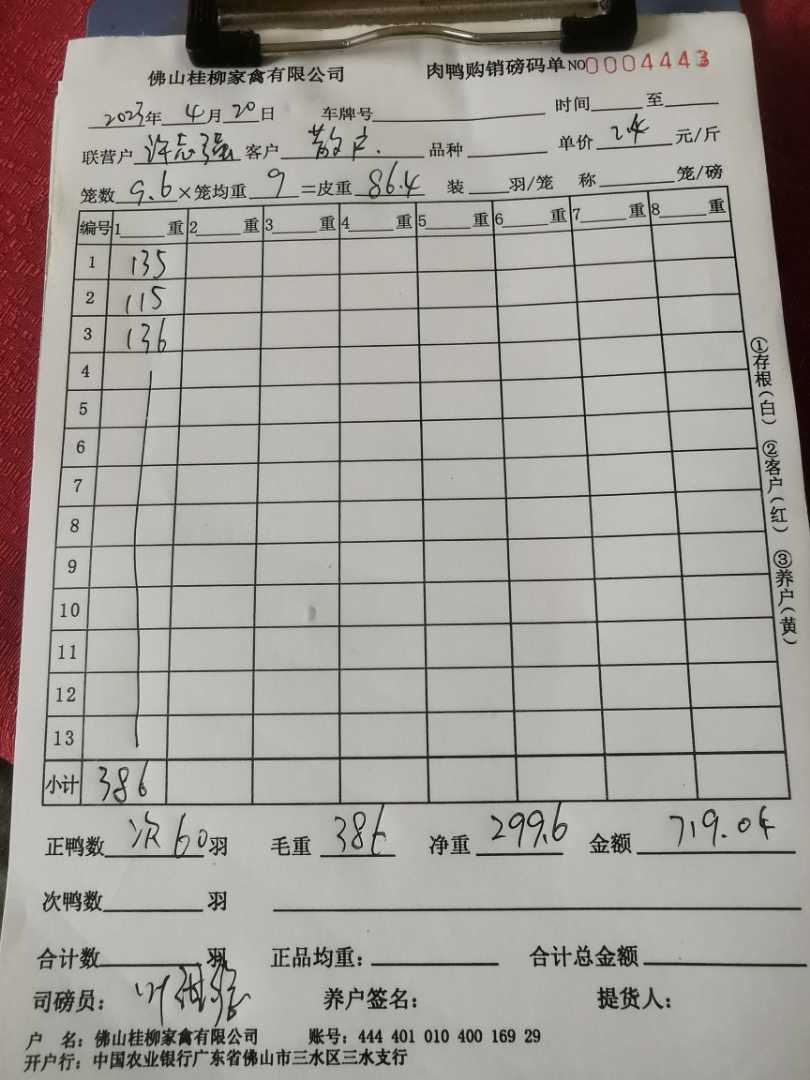 佛山桂柳家禽有限公司 肉鸭购销磅码单 NO 0004443
2023年 4月 20日 车牌号 时间 至
联营户 许志强 客户 散户. 品种 单价 2.4 元/斤
笼数 9.6 ×笼均重 9 =皮重 86.4 装 羽/笼 称 笼/磅
编号 1 重 2 重 3 重 4 重 5 重 6 重 7 重 8 重
1 135
2 115
3 136
4
5
6
7
8
9
10
11
12
13
小计 386
正鸭数 次60 羽 毛重 386 净重 299.6 金额 719.04
次鸭数 羽
合计数 羽 正品均重: 合计总金额
司磅员: 养户签名: 提货人:
户 名: 佛山桂柳家禽有限公司 账号: 444 401 010 400 169 29
开户行: 中国农业银行广东省佛山市三水区三水支行
①存根(白) ②客户(红) ③养户(黄)